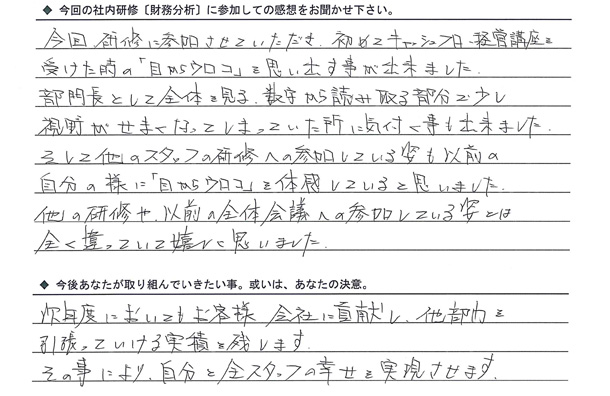 ◆ 今回の社内研修〔財務分析〕に参加しての感想をお聞かせ下さい。
今回 研修に参加させていただき、初めてキャッシュフロー経営講座を
受けた時の「目からウロコ」を思い出す事が出来ました。
部門長として全体を見る、数字から読み取る部分で少し
視野がせまくなってしまっていた所に気付く事も出来ました。
そして他のスタッフの研修への参加している姿も以前の
自分の様に「目からウロコ」を体感していると思いました。
他の研修や、以前の全体会議への参加している姿とは
全く違っていて嬉しく思いました。
◆ 今後あなたが取り組んでいきたい事。或いは、あなたの決意。
次年度においてもお客様 会社に貢献し、他部内を
引張っていける実績を残します。
その事により、自分と全スタッフの幸せを実現させます。